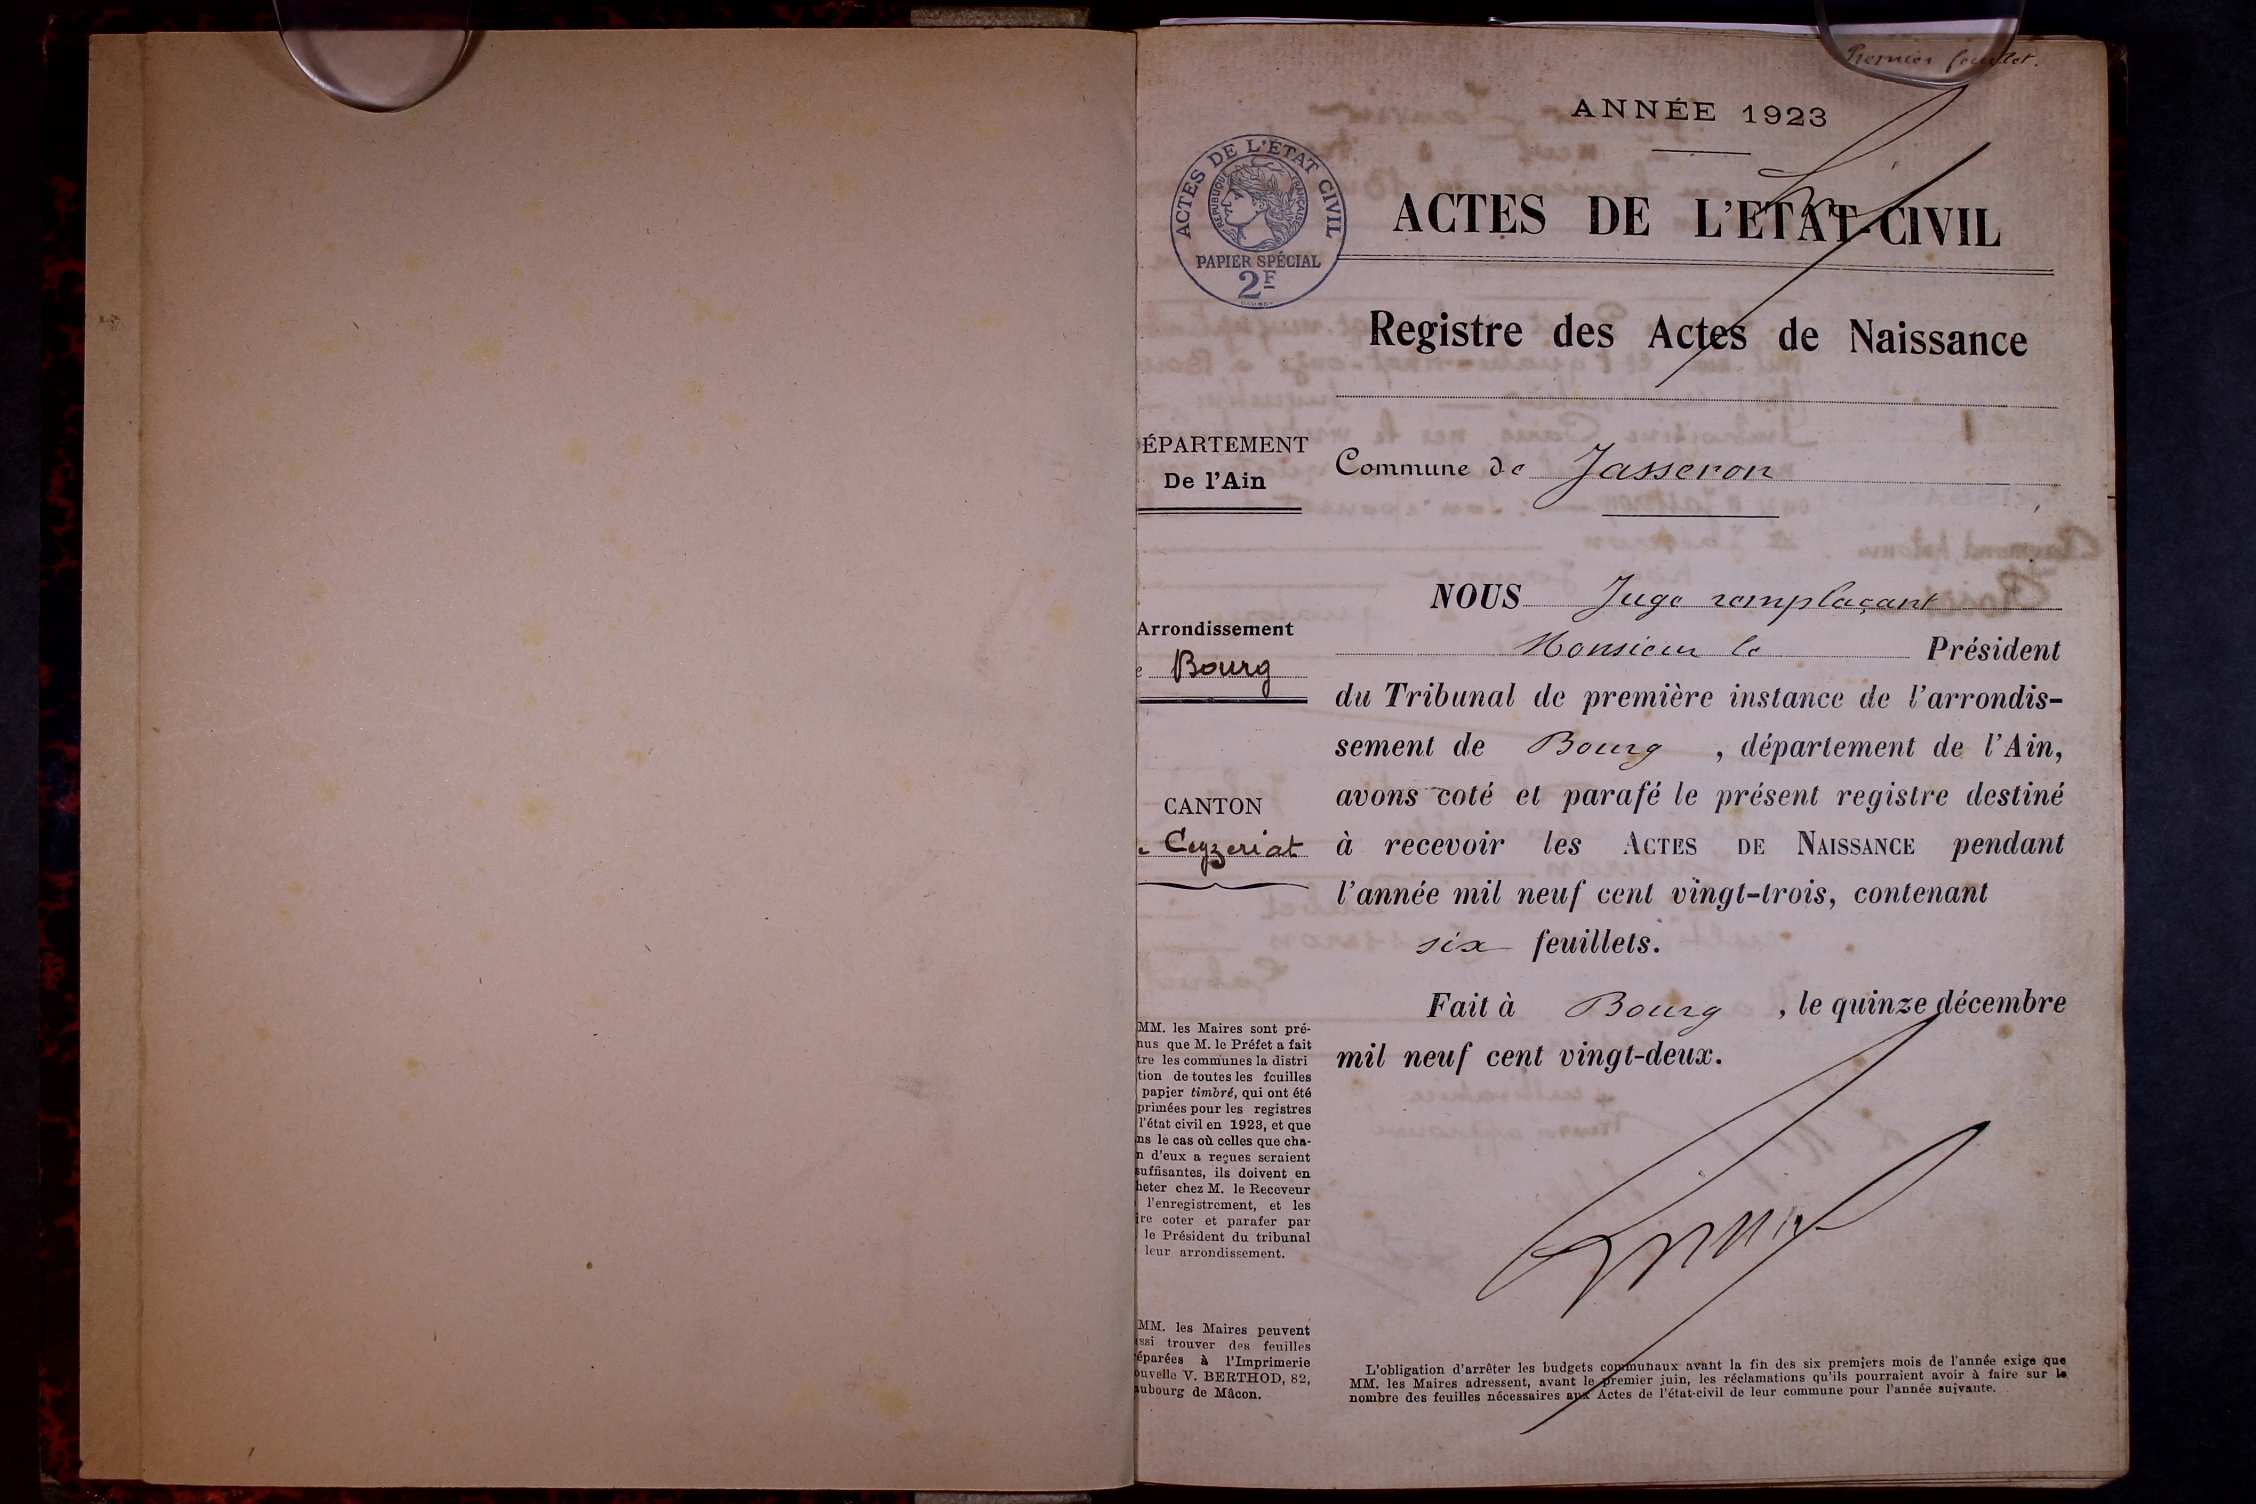 Premier feuillet.
ANNÉE 1923
ACTES DE L'ETAT CIVIL
REPUBLIQUE FRANÇAISE
PAPIER SPÉCIAL
2F
ACTES DE L'ETAT-CIVIL
Registre des Actes de Naissance
ÉPARTEMENT
De l'Ain
Commune de Jasseron
Arrondissement
e Bourg
CANTON
e Ceyzeriat
NOUS Juge remplaçant
Monsieur le Président
du Tribunal de première instance de l'arrondis-
sement de Bourg , département de l'Ain,
avons coté et parafé le présent registre destiné
à recevoir les ACTES DE NAISSANCE pendant
l'année mil neuf cent vingt-trois, contenant
six feuillets.
Fait à Bourg , le quinze décembre
mil neuf cent vingt-deux.
MM. les Maires sont pré-
nus que M. le Préfet a fait
tre les communes la distri
tion de toutes les feuilles
papier timbré, qui ont été
primées pour les registres
l'état civil en 1923, et que
ns le cas où celles que cha-
n d'eux a reçues seraient
suffisantes, ils doivent en
heter chez M. le Receveur
l'enregistrement, et les
ire coter et parafer par
le Président du tribunal
leur arrondissement.
MM. les Maires peuvent
ssi trouver des feuilles
éparées à l'Imprimerie
ouvelle V. BERTHOD, 82,
aubourg de Mâcon.
L'obligation d'arrêter les budgets communaux avant la fin des six premiers mois de l'année exige que
MM. les Maires adressent, avant le premier juin, les réclamations qu'ils pourraient avoir à faire sur le
nombre des feuilles nécessaires aux Actes de l'état-civil de leur commune pour l'année suivante.